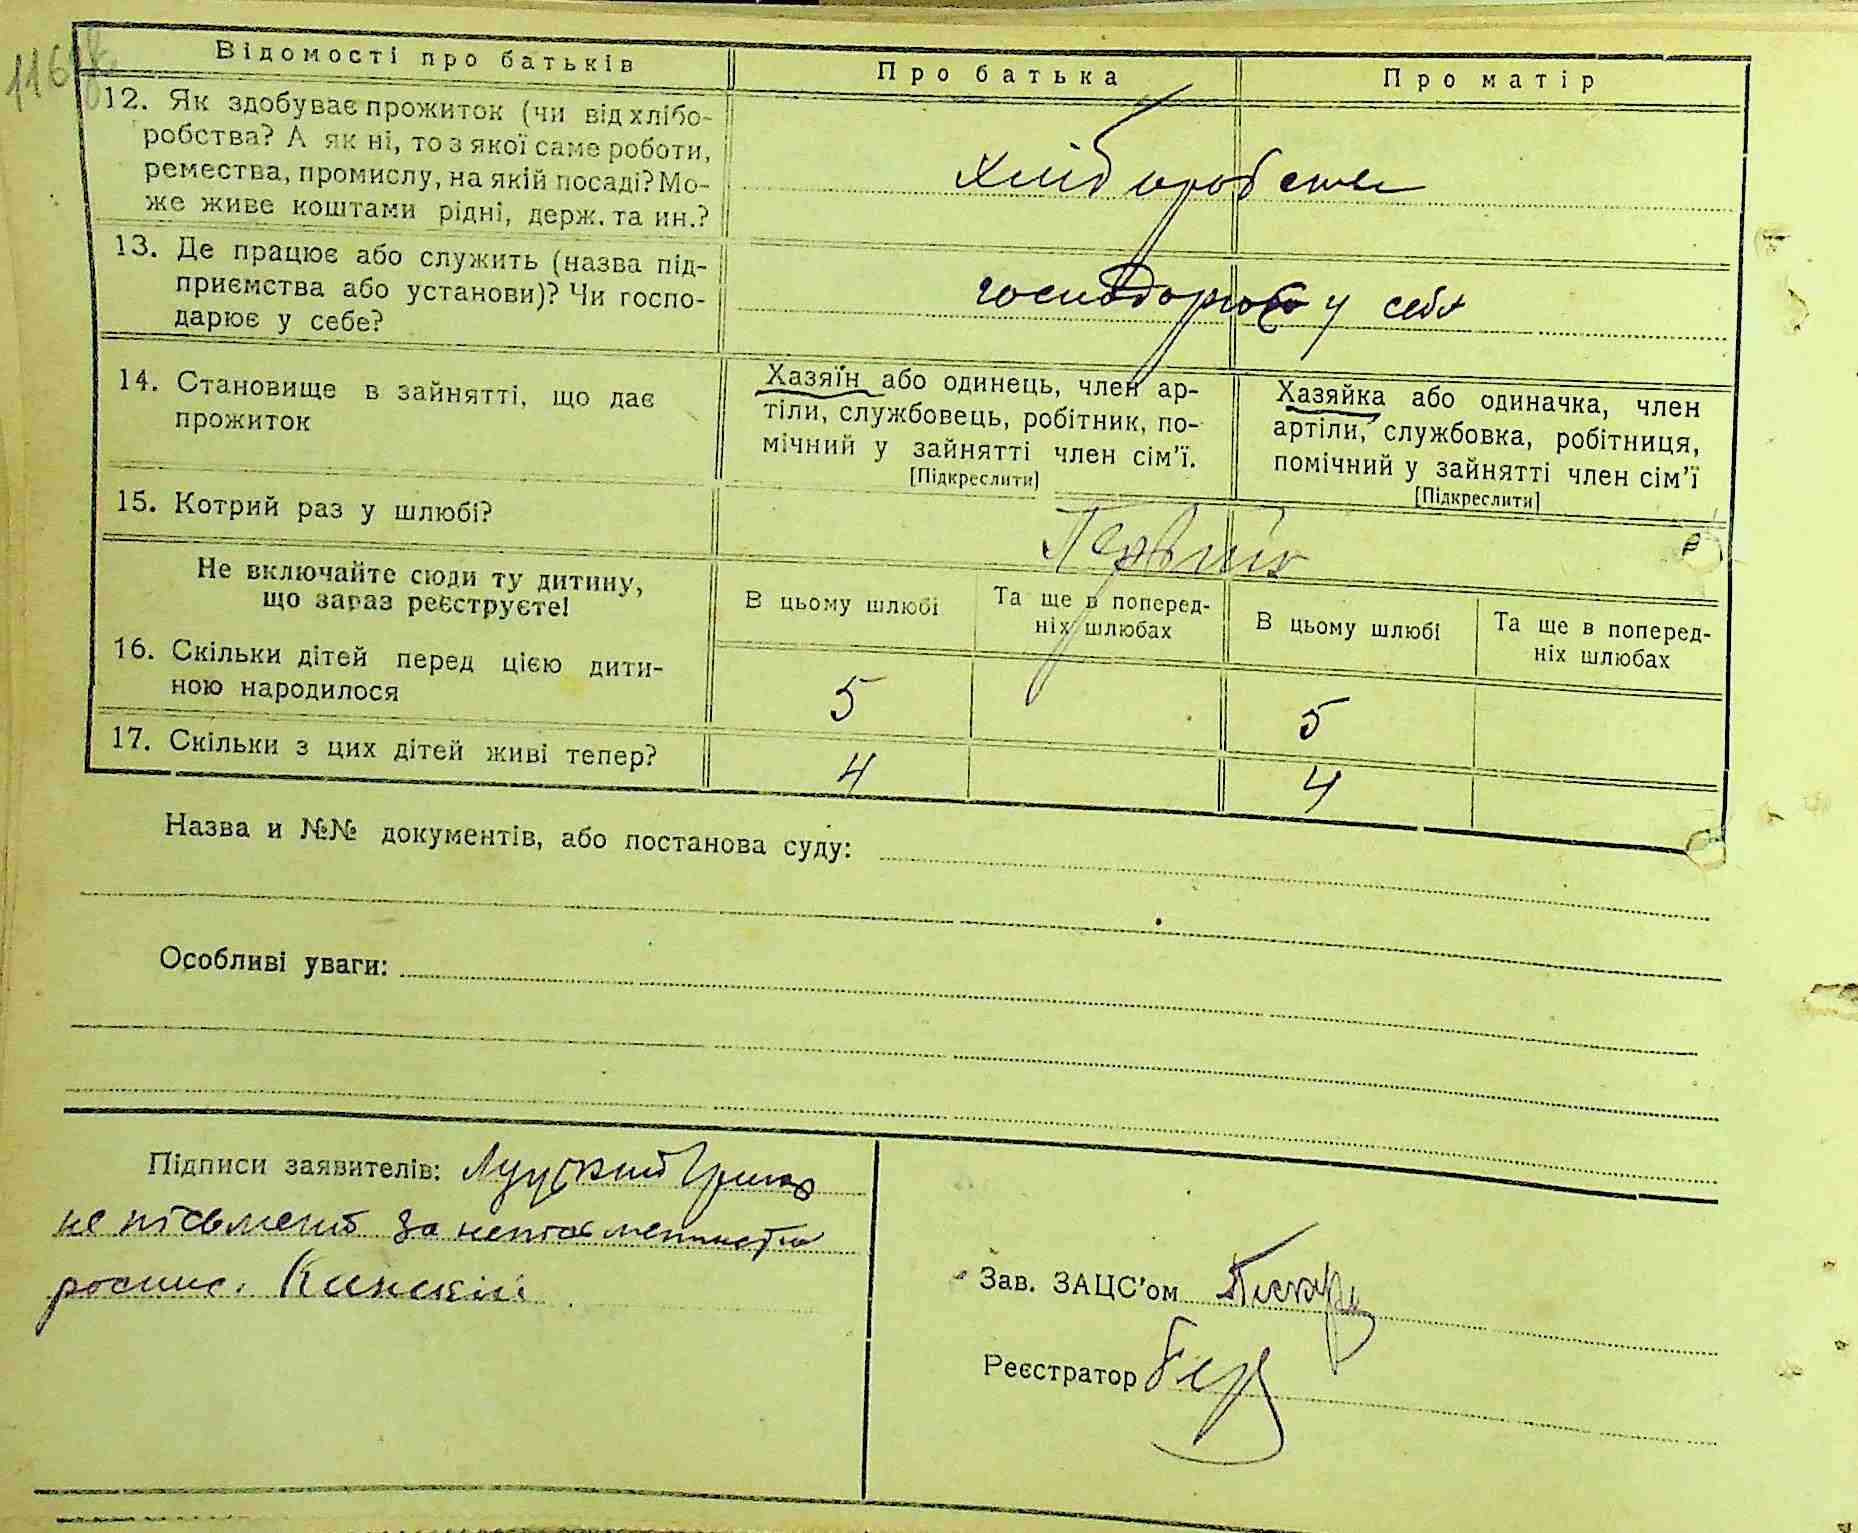 116
Відомості про батьків
Про батька
Про матір
12. Як здобуває прожиток (чи від хлібо-
робства? А як ні, то з якої саме роботи,
ремества, промислу, на якій посаді? Мо-
же живе коштами рідні, держ. та ин.?
хлібороб ством
13. Де працює або служить (назва під-
приємства або установи)? Чи госпо-
дарює у себе?
у себя
14. Становище в зайнятті, що дає
прожиток
Хазяїн або одинець, член ар-
тіли, службовець, робітник, по-
мічний у зайнятті член сім'ї.
[Підкреслити]
Хазяйка або одиначка, член
артіли, службовка, робітниця,
помічний у зайнятті член сім'ї
[Підкреслити]
15. Котрий раз у шлюбі?
Не включайте сюди ту дитину,
що зараз реєструєте!
В цьому шлюбі
Та ще в поперед-
ніх шлюбах
В цьому шлюбі
Та ще в поперед-
ніх шлюбах
16. Скільки дітей перед цією дити-
ною народилося
5
5
17. Скільки з цих дітей живі тепер?
4
4
Назва и №№ документів, або постанова суду:
Особливі уваги:
Підписи заявителів: Луцкий
не пісьмений за
роспис.
Зав. ЗАЦС'ом
Реєстратор